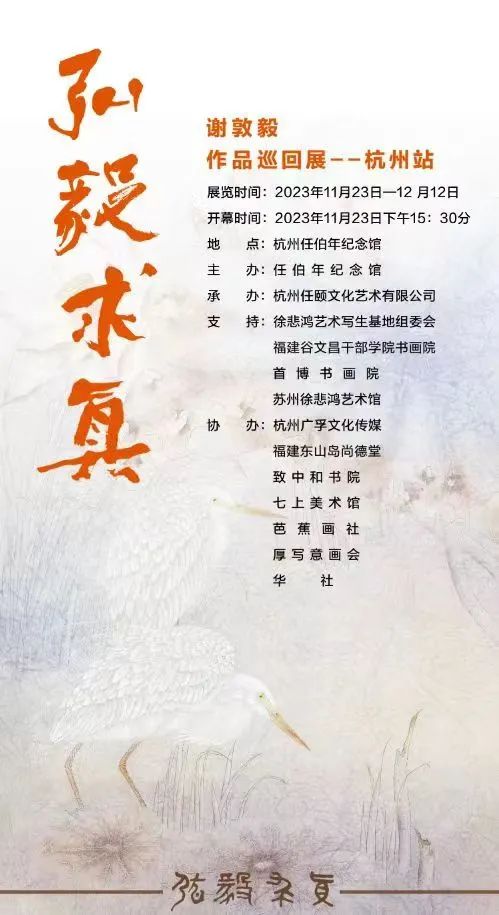 弘毅求真
谢敦毅
作品巡回展--杭州站
展览时间：2023年11月23日—12 月12日
开幕时间：2023年11月23日下午15：30分
地 点：杭州任伯年纪念馆
主 办：任伯年纪念馆
承 办：杭州任颐文化艺术有限公司
支 持：徐悲鸿艺术写生基地组委会
福建谷文昌干部学院书画院
首博书画院
苏州徐悲鸿艺术馆
协 办：杭州广孚文化传媒
福建东山岛尚德堂
致中和书院
七上美术馆
芭蕉画社
厚写意画会
华 社
弘毅求真